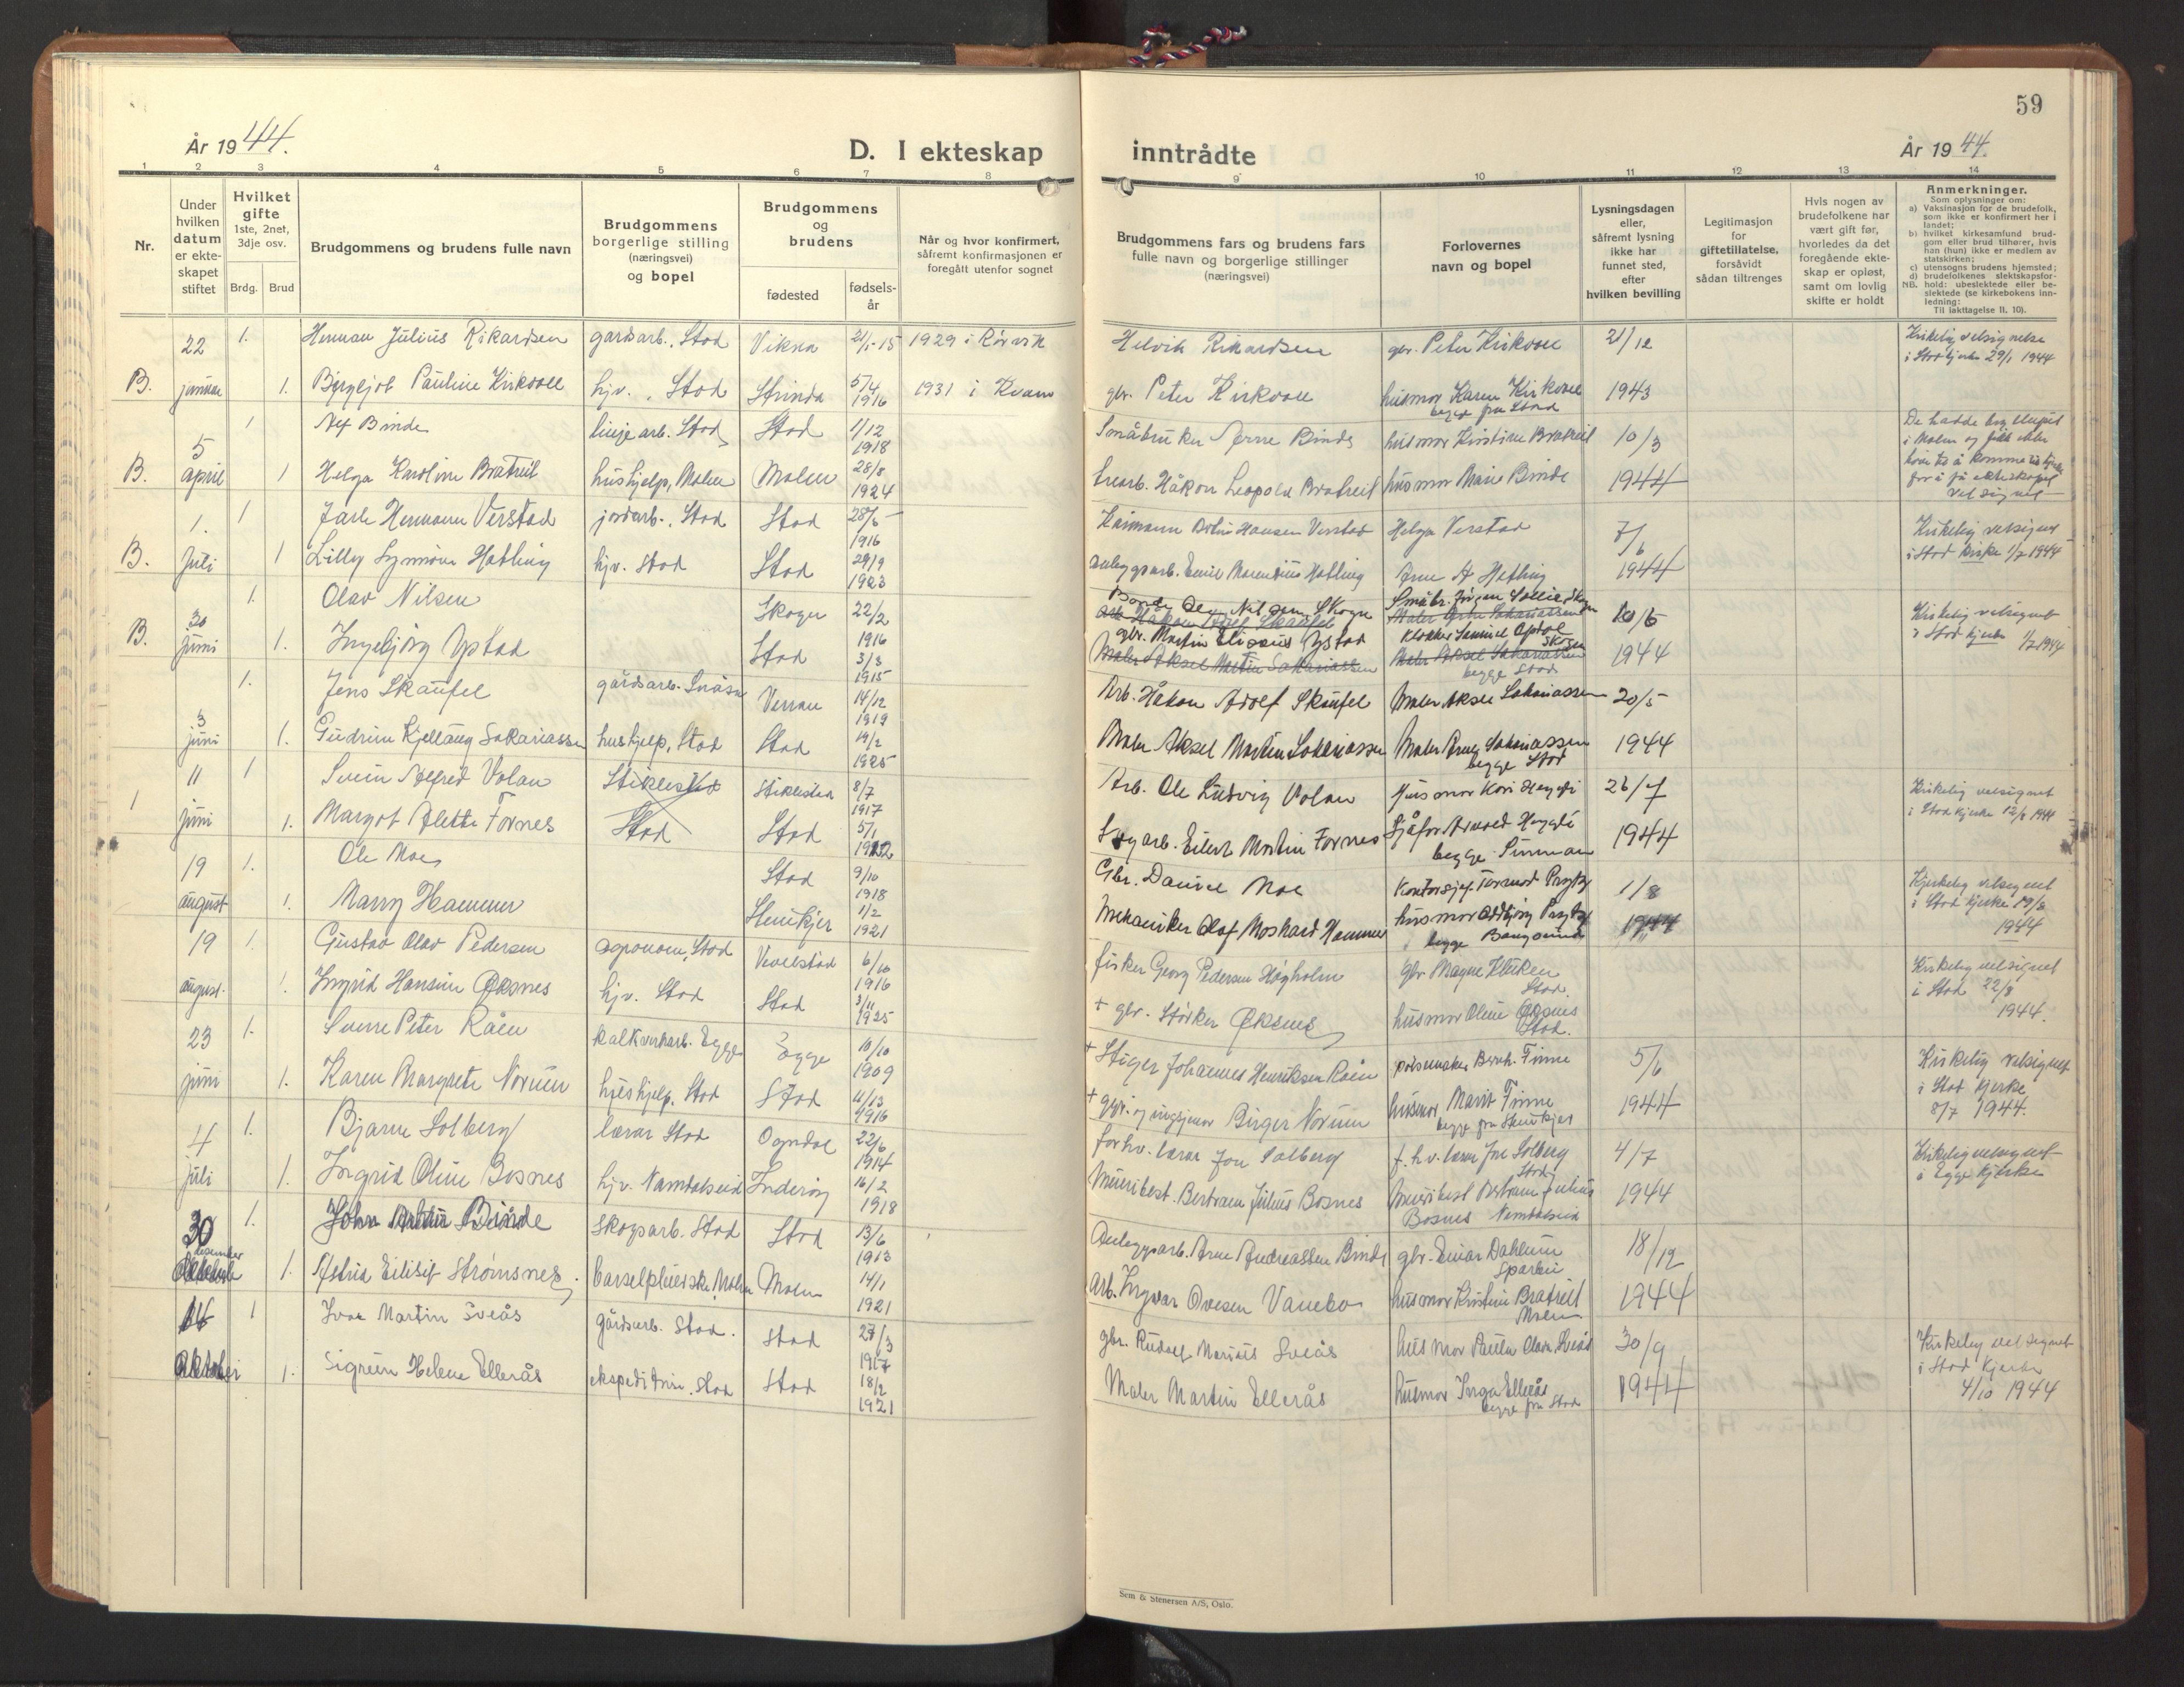 59
År 1944.
D. I ekteskap
inntrådte
År 1944.
1 2 3 4 5 6 7 8 9 10 11 12 13 14
Nr.
Under hvilken datum er ekteskapet stiftet
Hvilket gifte 1ste, 2net, 3dje osv.
Brdg. Brud
Brudgommens og brudens fulle navn
Brudgommens borgerlige stilling (næringsvei) og bopel
Brudgommens og brudens
fødested
fødselsår
Når og hvor konfirmert, såfremt konfirmasjonen er foregått utenfor sognet
Brudgommens fars og brudens fars fulle navn og borgerlige stillinger (næringsvei)
Forlovernes navn og bopel
Lysningsdagen eller, såfremt lysning ikke har funnet sted, efter hvilken bevilling
Legitimasjon for giftetillatelse, forsåvidt sådan tiltrenges
Hvis nogen av brudefolkene har vært gift før, hvorledes da det foregående ekteskap er opløst, samt om lovlig skifte er holdt
Anmerkninger.
Som oplysninger om:
a) Vaksinasjon for de brudefolk, som ikke er konfirmert her i landet;
b) hvilket kirkesamfund brudgom eller brud tilhører, hvis han (hun) ikke er medlem av statskirken;
c) utensogns brudens hjemsted;
d) brudefolkenes slektskapsforhold: ubeslektede eller beslektede (se kirkebokens innledning:
NB.
Til iakttagelse II, 10).
22 1. Herman Julius Rikardsen gardsarb., Stod Vikna 21/1-15 1929 i Rørvik Helvik Rikardsen gbr. Peter Kirkvoll 21/12 Kirkelig velsignelse
i Stod kjerke 29/1 1944
B. januar 1. Bergljot Pauline Kirkvoll hjv., Stod Strinda 5/4 1916 1931 i Kvam gbr. Peter Kirkvoll husmor Karen Kirkvoll 1943
begge fra Stod
5 1 Alf Binde linjearb. Stod Stod 1/12 1918 Småbruker Arne Binde husmor Kirstine Bratreit 10/3 De hadde bryllupet
i Malm og fikk ikke
B. april 1 Helga Karoline Bratreit hushjelp, Malm Malm 28/8 1924 trearb. Håkon Leopold Bratreit husmor Marie Binde 1944
for å få ekteskapet
velsignet
1. 1 Jarle Hermann Verstad jordarb., Stod Stod 28/6 1916 Hansen Verstad Helga Verstad 7/6 Kirkelig velsignet
i Stod kirke 1/7 1944
B. Juli 1 Lilly Synnøve Hatling hjv. Stod Stod 29/9 1923 anleggsarb. Emil Hatling Arne A Hatling 1944
30 1. Olav Nilsen Skogn 22/2 1916 Nilsen, Skogn 10/6 Kirkelig velsignet
i Stod kjerke 1/7 1944
B. Juni 1. Ingebjørg Ystad Stod 3/3 1915 gbr. Martin Elisæus Ystad 1944
begge Stod
3 1. Jens Skaufel gårdsarb. Snåsa Verran 14/12 1919 Arb. Håkon Adolf Skaufel Maler Aksel Sakariassen 20/5
juni 1. Gudrun Kjellaug Sakariassen hushjelp, Stod Stod 19/2 1925 Maler Aksel Martin Sakariassen Maler Arne Sakariassen 1944
begge Stod
11 1 Svein Alfred Volan Stiklestad Stiklestad 8/7 1917 Arb. Ole Ludvig Volan Husmor Kari 26/7 Kirkelig velsignet
i Stod kjerke 12/6 1944
1 juni 1. Margot Alette Fornes Stod Stod 5/1 1922 Sagarb. Eilert Martin Fornes Sjåfør 1944
begge
19 1. Ole Moe Stod 9/10 1918 Gbr. Daniel Moe Kontorsjef Tormod Prytz 1/8 Kjerkelig velsignet
i Stod kjerke 19/8
1944
august 1. Marry Hammer Steinkjer 1/2 1921 Mekaniker Olaf Hammer husmor Oddbjørg Prytz 1944
begge
19 1. Gustav Olav Pedersen agronom, Stod Vevelstad 6/10 1916 fisker Georg Pedersen Høgholm gbr Magne Kluken 1/8 Kirkelig velsignet
Stod.
i Stod 22/8
1944.
august. 1. Ingrid Hansine Øksnes hjv. Stod Stod 3/11 1925 + gbr. Størker Øksnes husmor Oline Øksnes
Stod.
23 1. Sverre Peter Råen kalkverkarb. Egge Egge 10/10 1909 + Stiger Johannes Henriksen Råen pølsemaker Bernh. Finne 5/6 Kirkelig velsignet
i Stod kjerke
8/7 1944.
juni 1. Karen Margrete Norum hushjelp, Stod Stod 1916 Birger Norum husmor Marit Finne 1944
begge fra Steinkjer
4 1. Bjarne Solberg lærer Stod Ogndal 22/6 1914 forhv. lærer Jon Solberg f.h.v. lærer Jon Solberg 4/7 Kirkelig velsignet
Stod
i Egge kjerke
juli 1. Ingrid Oline Bosnes hjv. Namdalseid Inderøy 16/2 1918 Murmest. Bertram Julius Bosnes Murmest Bertram Julius 1944
Bosnes Namdalseid
30 1. John Binde skogsarb. Stod Stod 13/6 1913 Anleggsarb. Arne Andreassen Binde gbr. Einar Dahlum 18/12
Sparbu
desember 1. Astrid Eilisif Strømsnes barselpleierske, Malm Malm 14/1 1921 Arb. Ingvar Ovesen Vanebo husmor Kristine Bratreit 1944
Malm
14 1 Ivar Martin Sveås gårdsarb. Stod. Stod 27/3 1917 gbr. Rudolf Marius Sveås husmor Paula Sveås 30/9 Kirkelig velsignet
i Stod kjerke
4/10 1944
Oktober 1. Sigrun Helene Ellerås ekspeditrise. Stod Stod 18/2 1921 Maler Martin Ellerås husmor Inga Ellerås 1944
begge fra Stod
Sem & Stenersen A/S, Oslo.